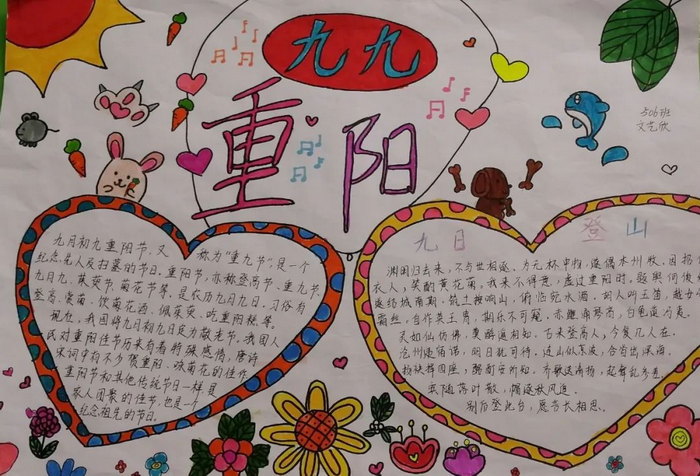 九九
重阳
506班
文艺欣
九月初九重阳节,又
称为"重九节",是一个
纪念先人及扫墓的节日。重阳节,亦称登高节、重九节、
九月九、茱萸节、菊花节等,是农历九月九日,习俗有
登高、赏菊、饮菊花酒、佩茱萸、吃重阳糕等。
我国将九月初九日定为敬老节。我国人
民对重阳佳节历来有着特殊感情,唐诗
宋词中有不少贺重阳、咏菊花的佳作。
重阳节和其他传统节日一样是
家人团聚的佳节,也是一个
纪念祖先的节日。
九日 登山
渊明归去来,不与世相逐。为无杯中物,遂偶本州牧。因招白
衣人,笑酌黄花菊。我来不得意,虚过重阳时。题舆何俊发,
遂结城南期。筑土按响山,俯临宛水湄。胡人叫玉笛,越女弹
霜丝。自作英王胄,斯乐不可窥。赤鲤涌琴高,白龟道冯夷。
灵如仙仿佛,奠酹遥相知。古来登高人,今复几人在。
沧洲违宿诺,明日犹可待。连山似惊波,合沓出溟海。
扬袂挥四座,酩酊安所知。齐歌送清扬,起舞乱参差。
宾随落叶散,帽逐秋风吹。
别后登此台,愿言长相思。